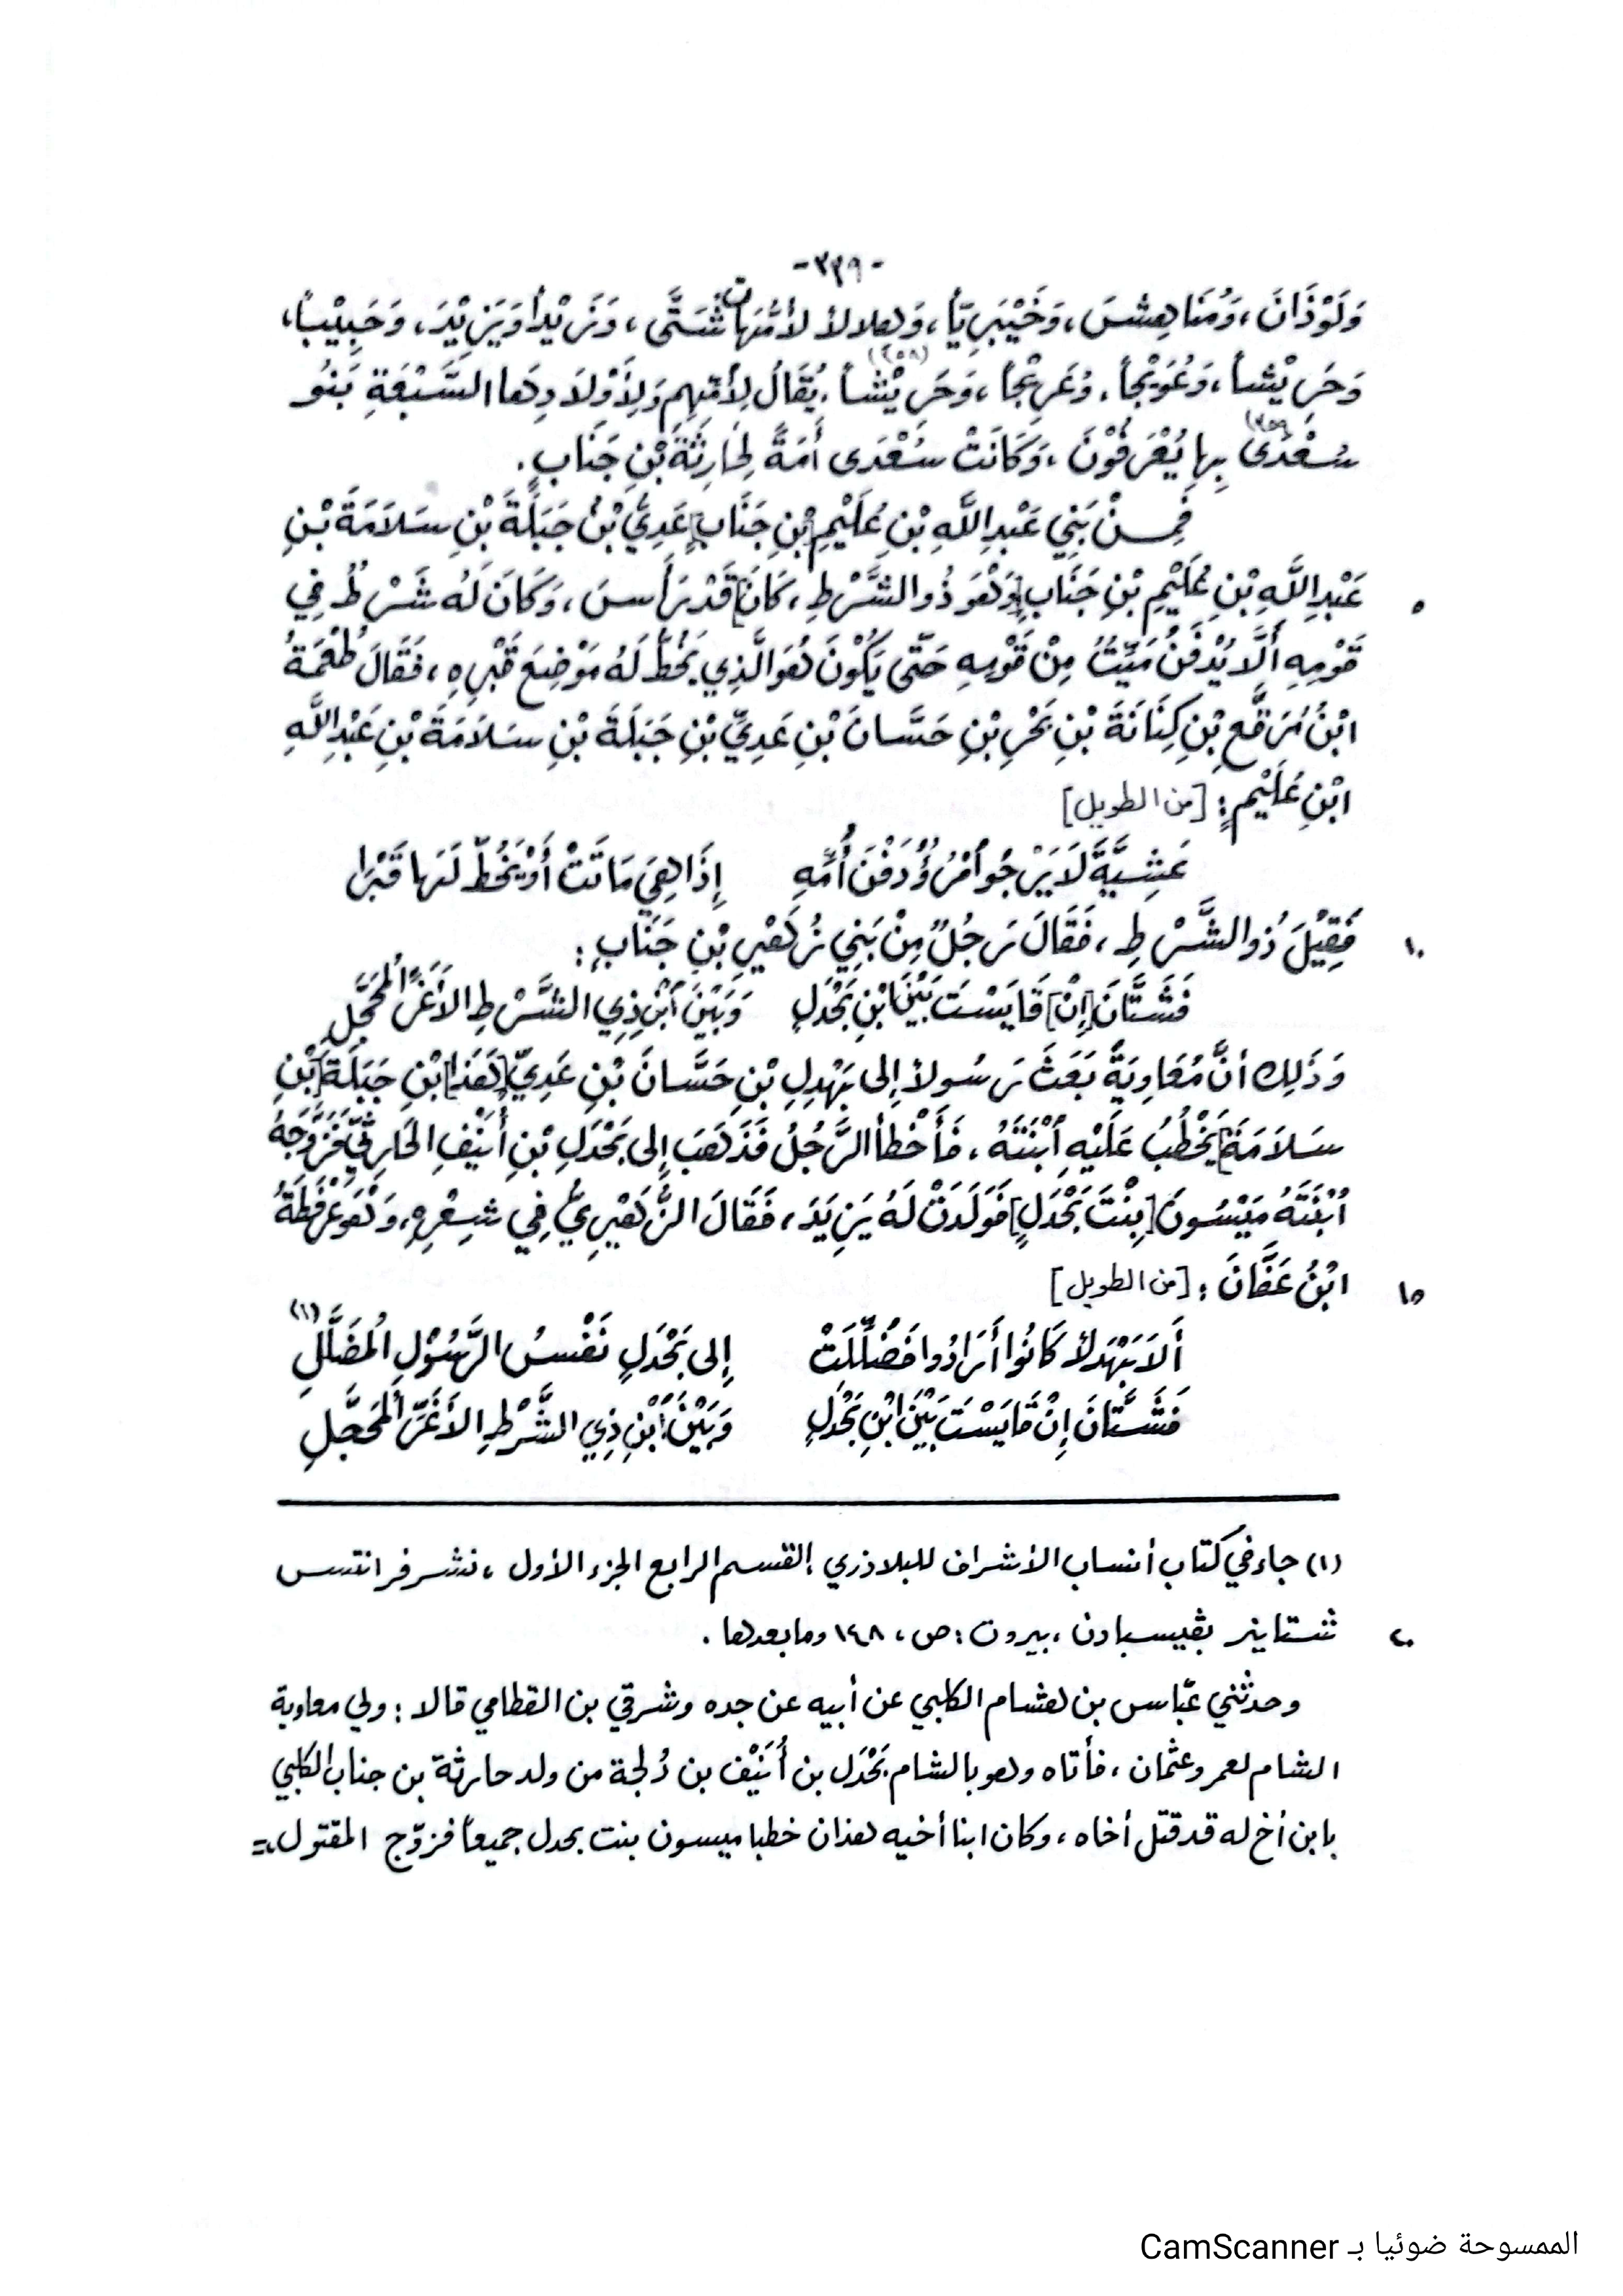 -٣٣٩-
وَلَوْذَانَ، وَمُنَاهِسَ، وَخَيْبَرِيّاً، وَهِلالاً لأُمَّهَاتٍ شَتَّى، وَزَيْداً وَيَزِيْدَ، وَحَبِيْباً،
وَحَرِيْشاً، وَعُوَيْجاً، وَعَرِيْجاً، وَحَرِيْشاً (٢٥٨)، يُقَالُ لِأُمِّهِم وَلِأَوْلَادِهَا السَّبْعَةِ بَنُو
سُعْدَى (٢٥٩) بِها يُعْرَفُوْنَ، وَكَانَتْ سُعْدَى أَمَةً لِحَارِثَةَ بْنِ جَنَابٍ.
فَمِنْ بَنِي عَبْدِ اللَّهِ بْنِ عُلَيْمِ [بْنِ جَنَابٍ] عَدِيُّ بْنُ جَبَلَةَ بْنِ سَلَامَةَ بْنِ
عَبْدِ اللَّهِ بْنِ عُلَيْمِ بْنِ جَنَابٍ [وَهُوَ ذُو الشَّرْطِ، كَانَ] قَدْ رَأَسَ، وَكَانَ لَهُ شَرْطٌ فِي ٥
قَوْمِهِ أَلَّا يُدْفَنُ مَيِّتٌ مِنْ قَوْمِهِ حَتَّى يَكُوْنَ هُوَ الَّذِي يَخُطُّ لَهُ مَوْضِعَ قَبْرِهِ، فَقَالَ طُعْمَةُ
ابْنُ مُرَقَّعِ بْنِ كِنَانَةَ بْنِ بَحْرِ بْنِ حَسَّانَ بْنِ عَدِيِّ بْنِ جَبَلَةَ بْنِ سَلَامَةَ بْنِ عَبْدِ اللَّهِ
ابْنِ عُلَيْمٍ: [من الطويل]
عَشِيَّةَ لَا يَرْجُو امْرُؤٌ دَفْنَ أُمِّهِ إِذَا هِيَ مَاتَتْ أَوْ يَخُطَّ لَهَا قَبْرَا
فَقِيْلَ ذُو الشَّرْطِ، فَقَالَ رَجُلٌ مِنْ بَنِي زُهَيْرِ بْنِ جَنَابٍ: ١٠
فَشَتَّانَ [إِنْ] قَايَسْتَ بَيْنَ ابْنِ بَحْدَلٍ وَبَيْنَ ابْنِ ذِي الشَّرْطِ الأَغَرِّ المُحَجَّلِ
وَذَلِكَ أنَّ مُعَاوِيَةَ بَعَثَ رَسُولاً إلى بَهْدَلِ بْنِ حَسَّانَ بْنِ عَدِيِّ [هَذَا] بْنِ جَبَلَةَ [بْنِ
سَلَامَةَ] يَخْطُبُ عَلَيْهِ ابْنَتَهُ، فَأَخْطأ الرَّجُلُ فَذَهَبَ إلى بَحْدَلِ بْنِ أُنَيْفِ الحَارِثِيِّ، فَزَوَّجَهُ
ابْنَتَهُ مَيْسُونَ [بِنْتَ بَحْدَلٍ] فَوَلَدَتْ لَهُ يَزِيَدَ، فَقَالَ الزُّهَيْرِيُّ فِي شِعْرِهِ، وَهُوَ عُرْفُطَةُ
ابْنُ عَفَّانَ: [من الطويل] ١٥
أَلَا بَهْدَلاً كَانُوا أَرَادُوا فَضُلِّلَتْ إِلى بَحْدَلٍ نَفْسُ الرَّسُوْلِ المُضَلَّلِ (١)
فَشَتَّانَ إِنْ قَايَسْتَ بَيْنَ ابْنِ بَحْدَلٍ وَبَيْنَ ابْنِ ذِي الشَّرْطِ الأَغَرِّ المُحَجَّلِ
(١) جاء في كتاب أنساب الأشراف للبلاذري، القسم الرابع الجزء الأول، نشر فرانتس
شتاينر بڤيسبادن، بيروت: ص، ١٤٨ وما بعدها. ٢٠
وحدثني عبّاس بن هشام الكلبي عن أبيه عن جده وشرقي بن القطامي قالا: ولي معاوية
الشام لعمر وعثمان، فأتاه وهو بالشام بَحْدَل بن أُنَيْف بن دُلجة من ولد حارثة بن جناب الكلبي
بابن أخ له قد قتل أخاه، وكان ابنا أخيه هذان خطبا ميسون بنت بحدل جميعاً فزوّج المقتول =
الممسوحة ضوئيا بـ CamScanner